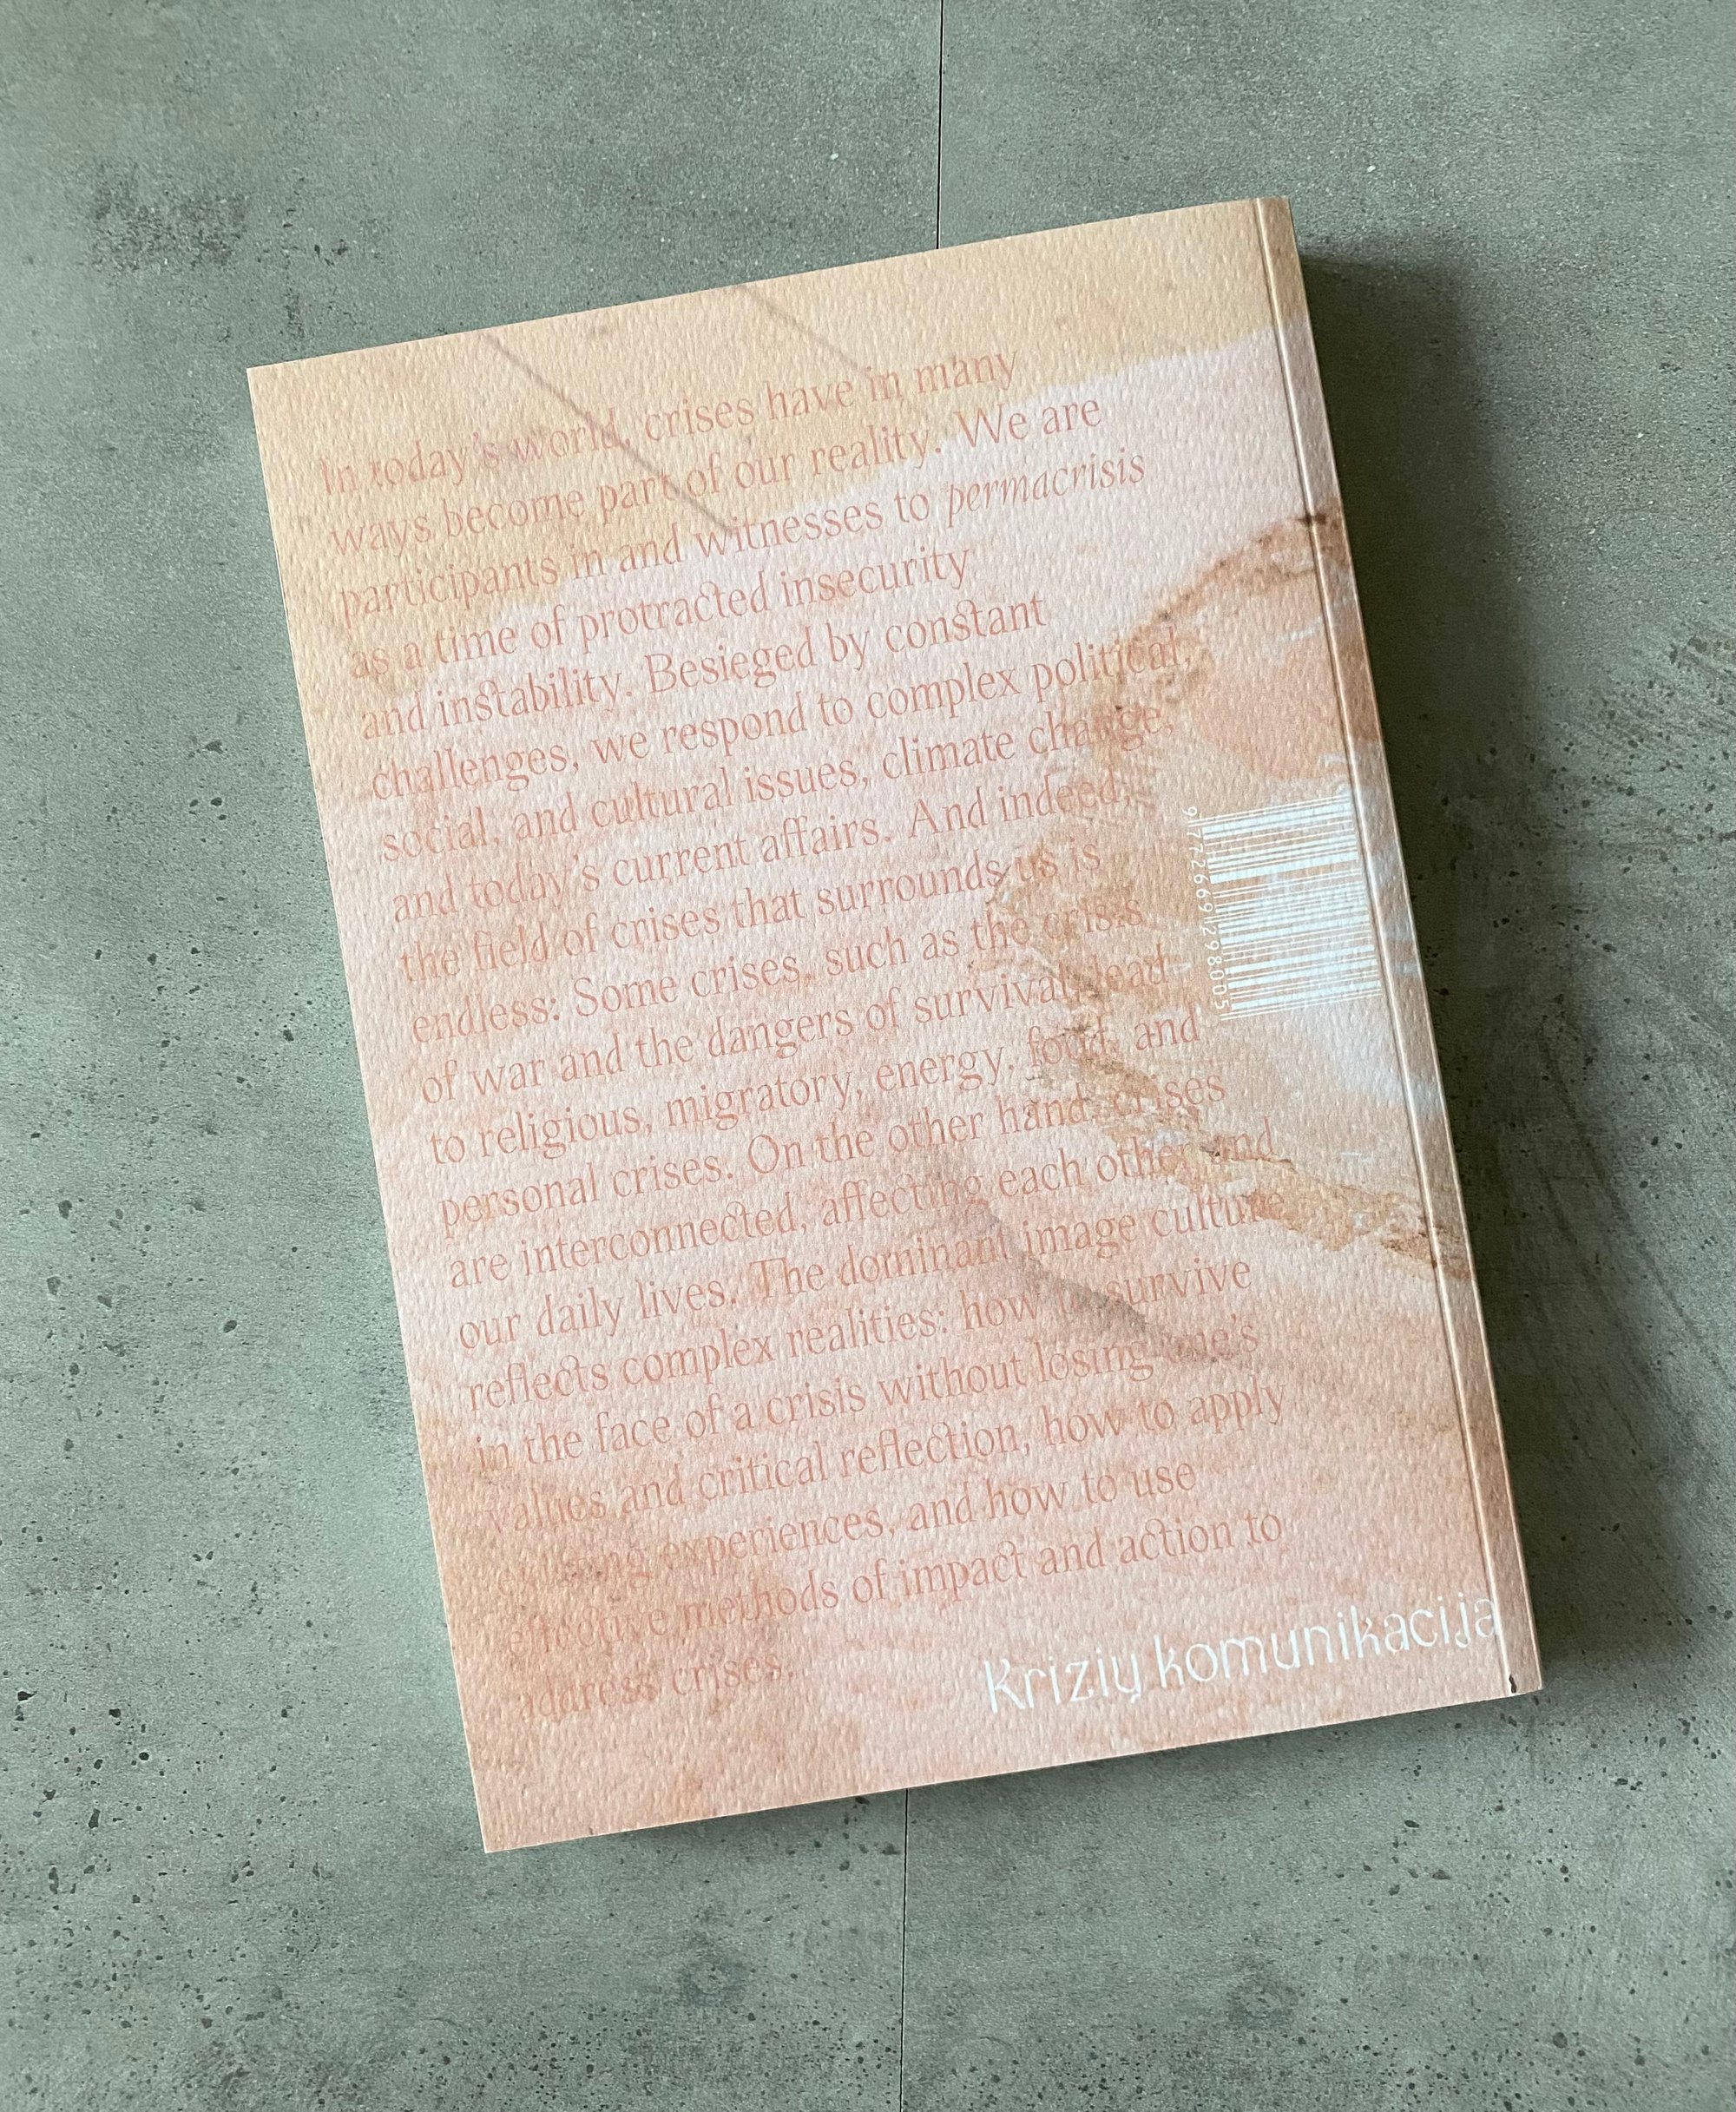 In today's world, crises have in many
ways become part of our reality. We are
participants in and witnesses to permacrisis
as a time of protracted insecurity
and instability. Besieged by constant
challenges, we respond to complex political,
social, and cultural issues, climate change,
and today's current affairs. And indeed,
the field of crises that surrounds us is
endless: Some crises, such as the crisis
of war and the dangers of survival, lead
to religious, migratory, energy, food, and
personal crises. On the other hand, crises
are interconnected, affecting each other and
our daily lives. The dominant image culture
reflects complex realities: how to survive
in the face of a crisis without losing one's
values and critical reflection, how to apply
existing experiences, and how to use
effective methods of impact and action to
address crises.
9772669298005
Krizių komunikacija